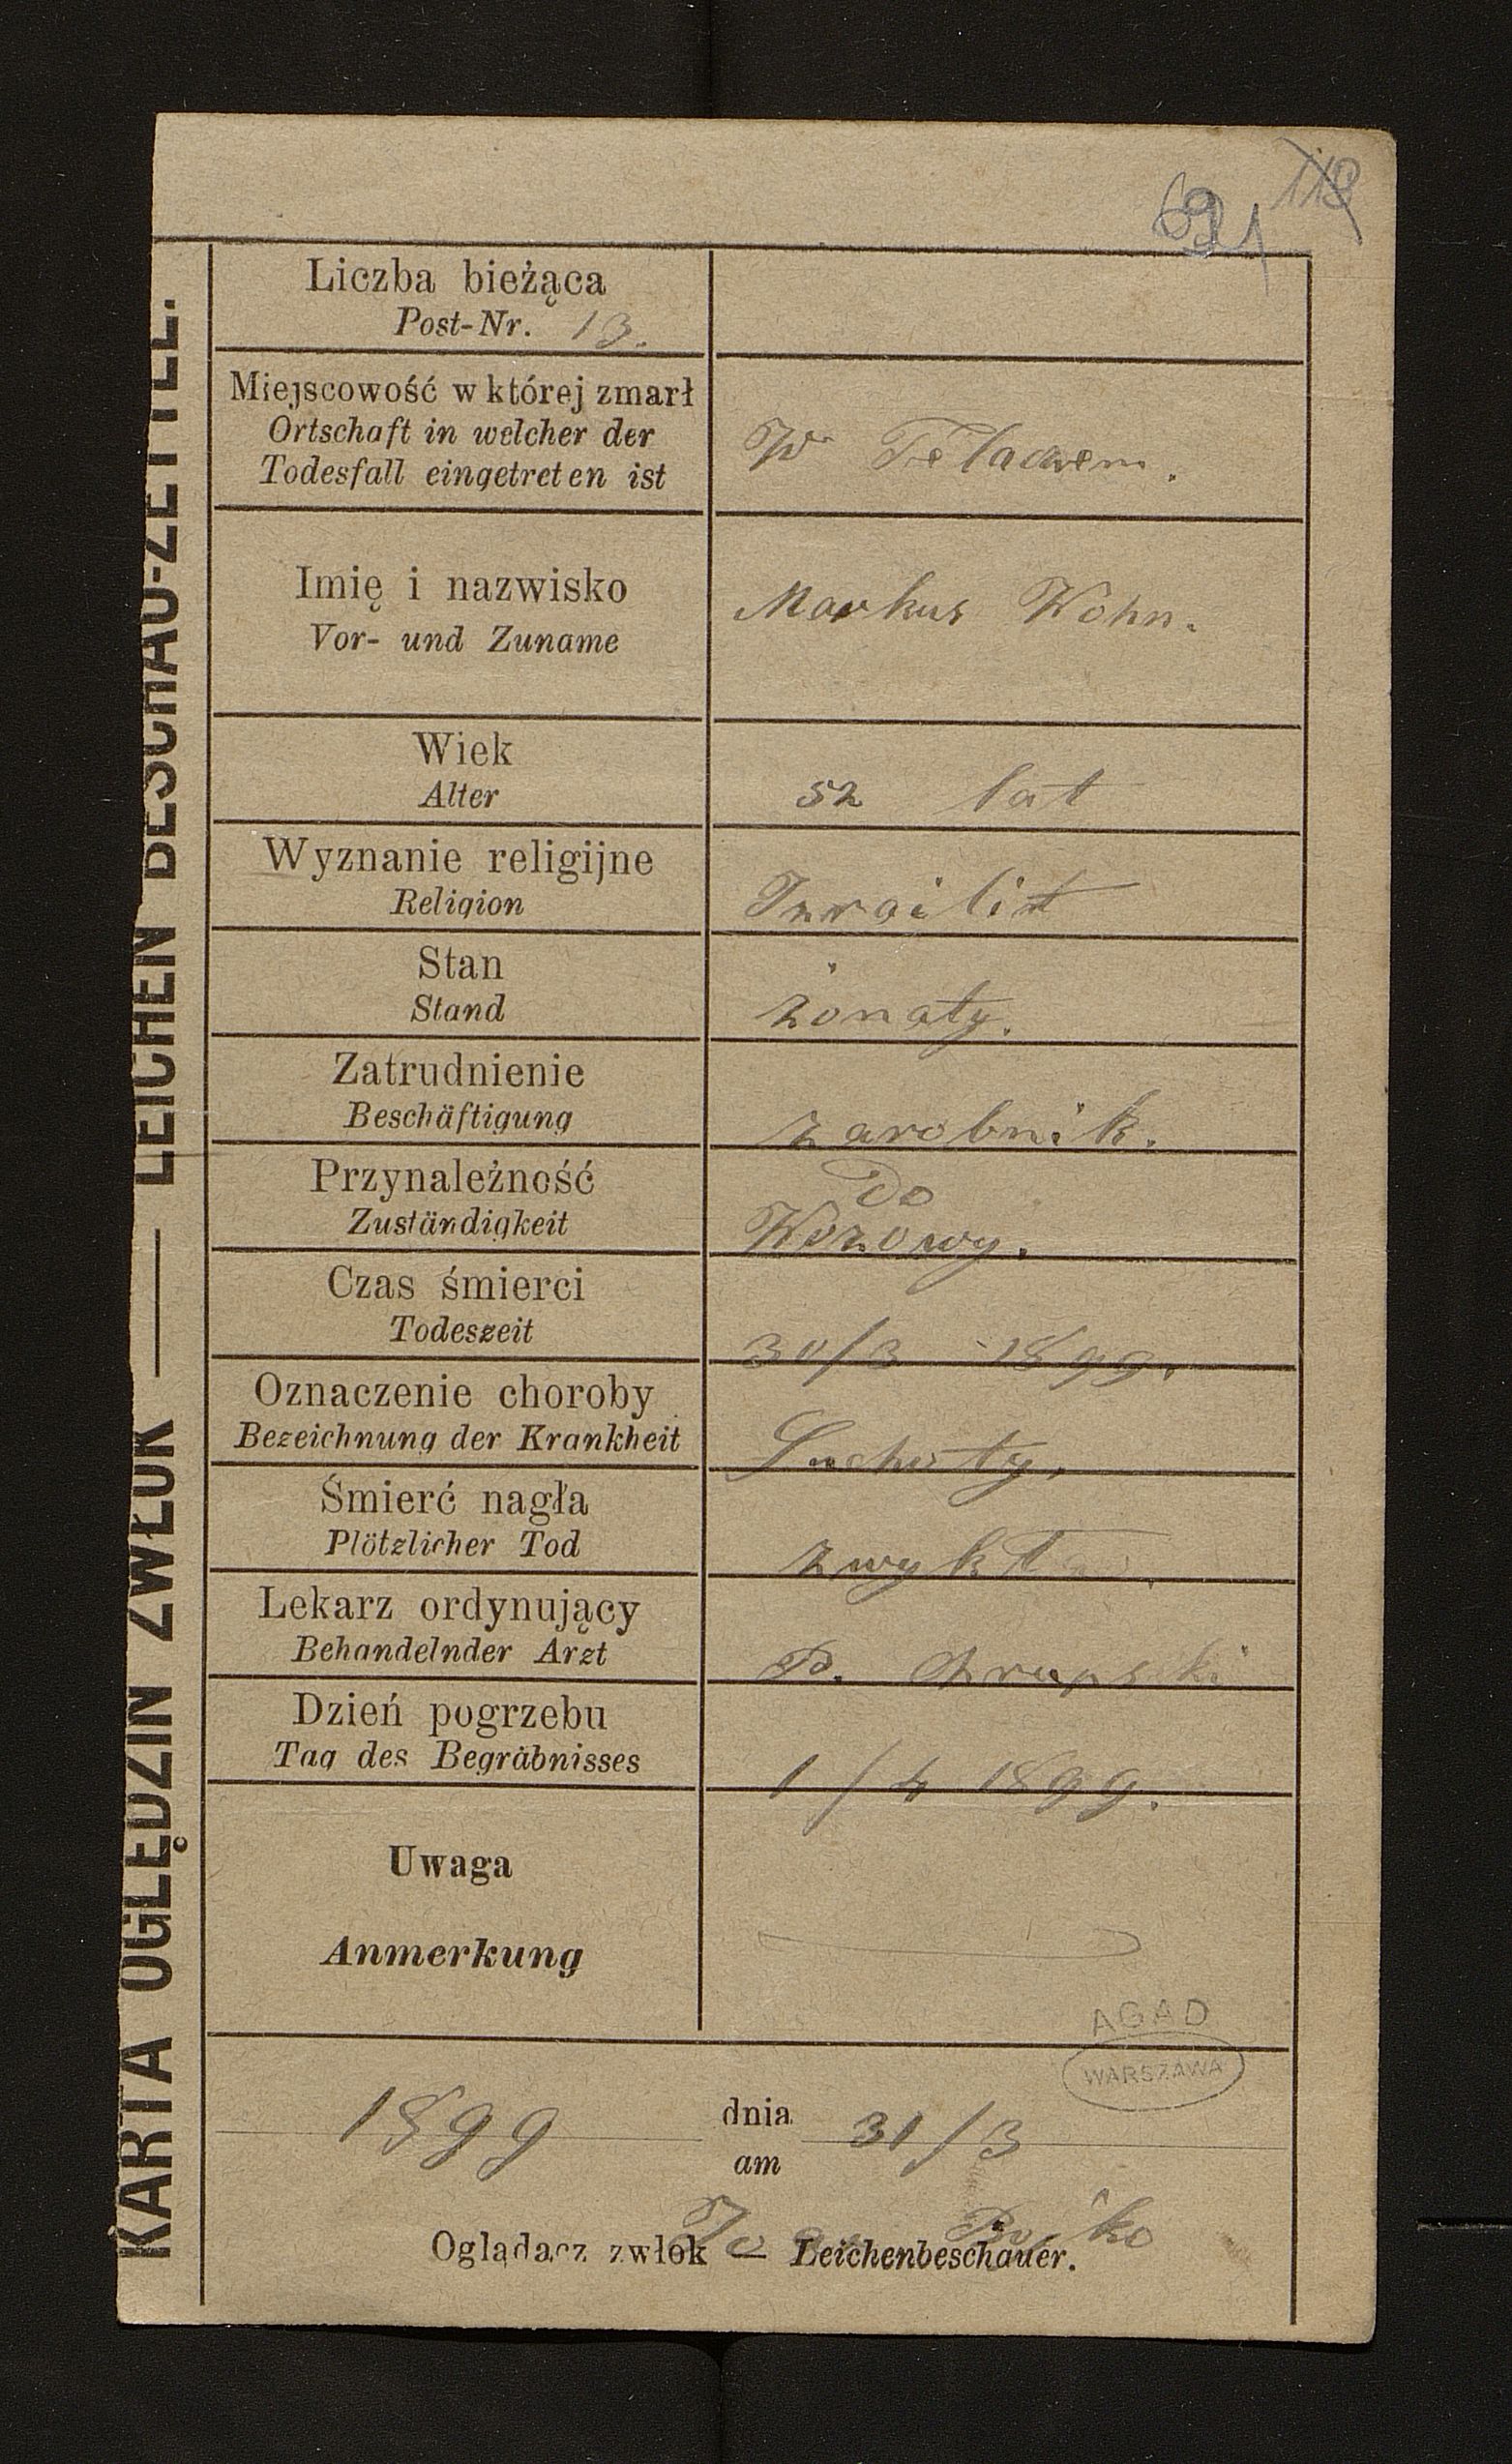 118
691
KARTA OGLĘDZIN ZWŁOK — LEICHEN BESCHAU-ZETTEL.
Liczba bieżąca
Post-Nr. 13.
Miejscowość w której zmarł
Ortschaft in welcher der
Todesfall eingetreten ist
W
Imię i nazwisko
Vor- und Zuname
Markus Wohn.
Wiek
Alter
52 lat
Wyznanie religijne
Religion
Izrailit
Stan
Stand
żonaty.
Zatrudnienie
Beschäftigung
zarobnik.
Przynależność
Zuständigkeit
Do
Wozowy.
Czas śmierci
Todeszeit
30/3 1899.
Oznaczenie choroby
Bezeichnung der Krankheit
Suchoty.
Śmierć nagła
Plötzlicher Tod
zwykła.
Lekarz ordynujący
Behandelnder Arzt
P.
Dzień pogrzebu
Tag des Begräbnisses
1/4 1899.
Uwaga
Anmerkung
AGAD
WARSZAWA
1899 dnia 31/3
am
Oglądacz zwłok — Leichenbeschauer.